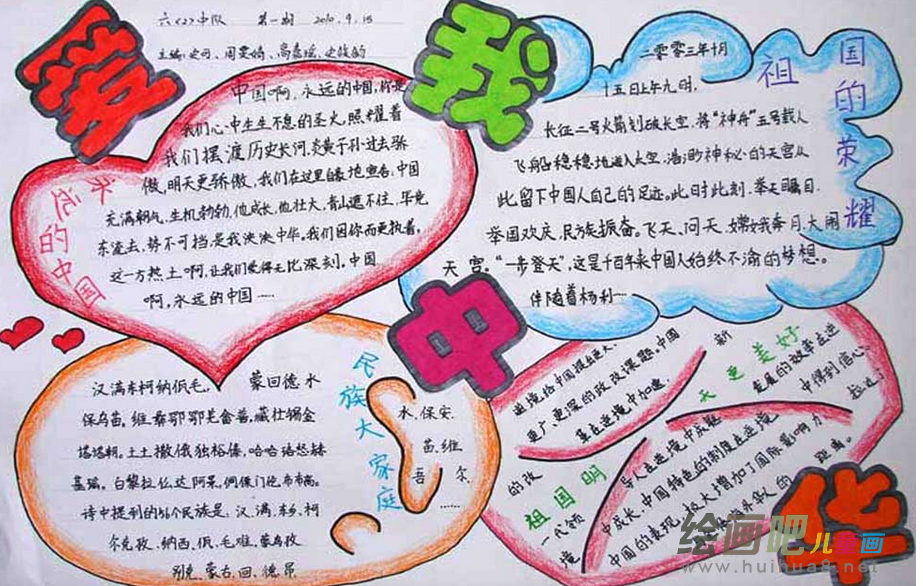 六〈2〉中队 第一期 2010.9.15
爱
我
中
华
永远的中国
中国啊,永远的中国,你是
我们心中生生不息的圣火,照耀着
我们摆渡历史长河,炎黄子孙过去骄
傲,明天更骄傲,我们在这里自豪地宣告,中国
充满朝气,生机勃勃,他成长,他壮大,青山遮不住,毕竟
东流去,势不可挡是我泱泱中华。我们因你而更执着,
这一方热土啊,让我们爱得无比深刻,中国
啊,永远的中国……
祖国的荣耀
二零零三年十月
十五日上午九时,
长征二号火箭划破长空,将“神舟”五号载人
飞船稳稳地送入太空,浩渺神秘的天宫从
此留下中国人自己的足迹。此时此刻,举天瞩目,
举国欢庆,民族振奋。飞天、问天、嫦娥奔月、大闹
天宫。“一步登天”,这是千百年来中国人始终不渝的梦想。
伴随着杨利…
民族大家庭
汉满东柯纳佤毛, 蒙回德水
保乌苗。
诗中提到的56个民族是、汉、满、东乡、柯
尔克孜、纳西、佤、毛难、蒙乌孜
别克、蒙古、回、德昂、
水、保安、
苗、维
吾 尔、
……
祖国明天更美好
新
发展的故事在逆
中得到信心、
更广、更深的改改课题。中国
革在逆境中加速,
的改
一代领
导人在逆境中成熟
境
中成长,中国特色的制度在逆境
中国的表现,极大增加了国际影响力
绘画吧儿童画
www.huihua8.net